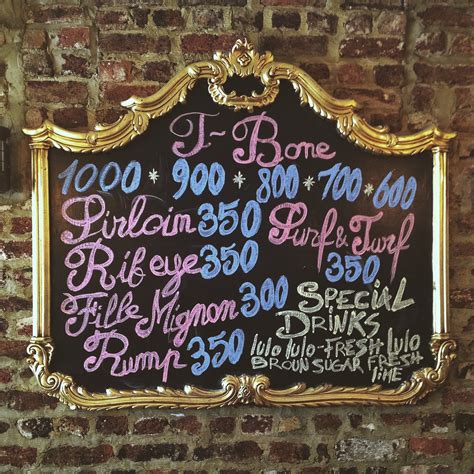 T-Bone
1000 * 900 * 800 * 700 * 600
Sirloin 350
Ribeye 350
Fille Mignon 300
Rump 350
Surf & Turf
350
SPECIAL
DRINKS
lulo lulo-FRESH lulo
BROUN SUGAR FRESH
lime